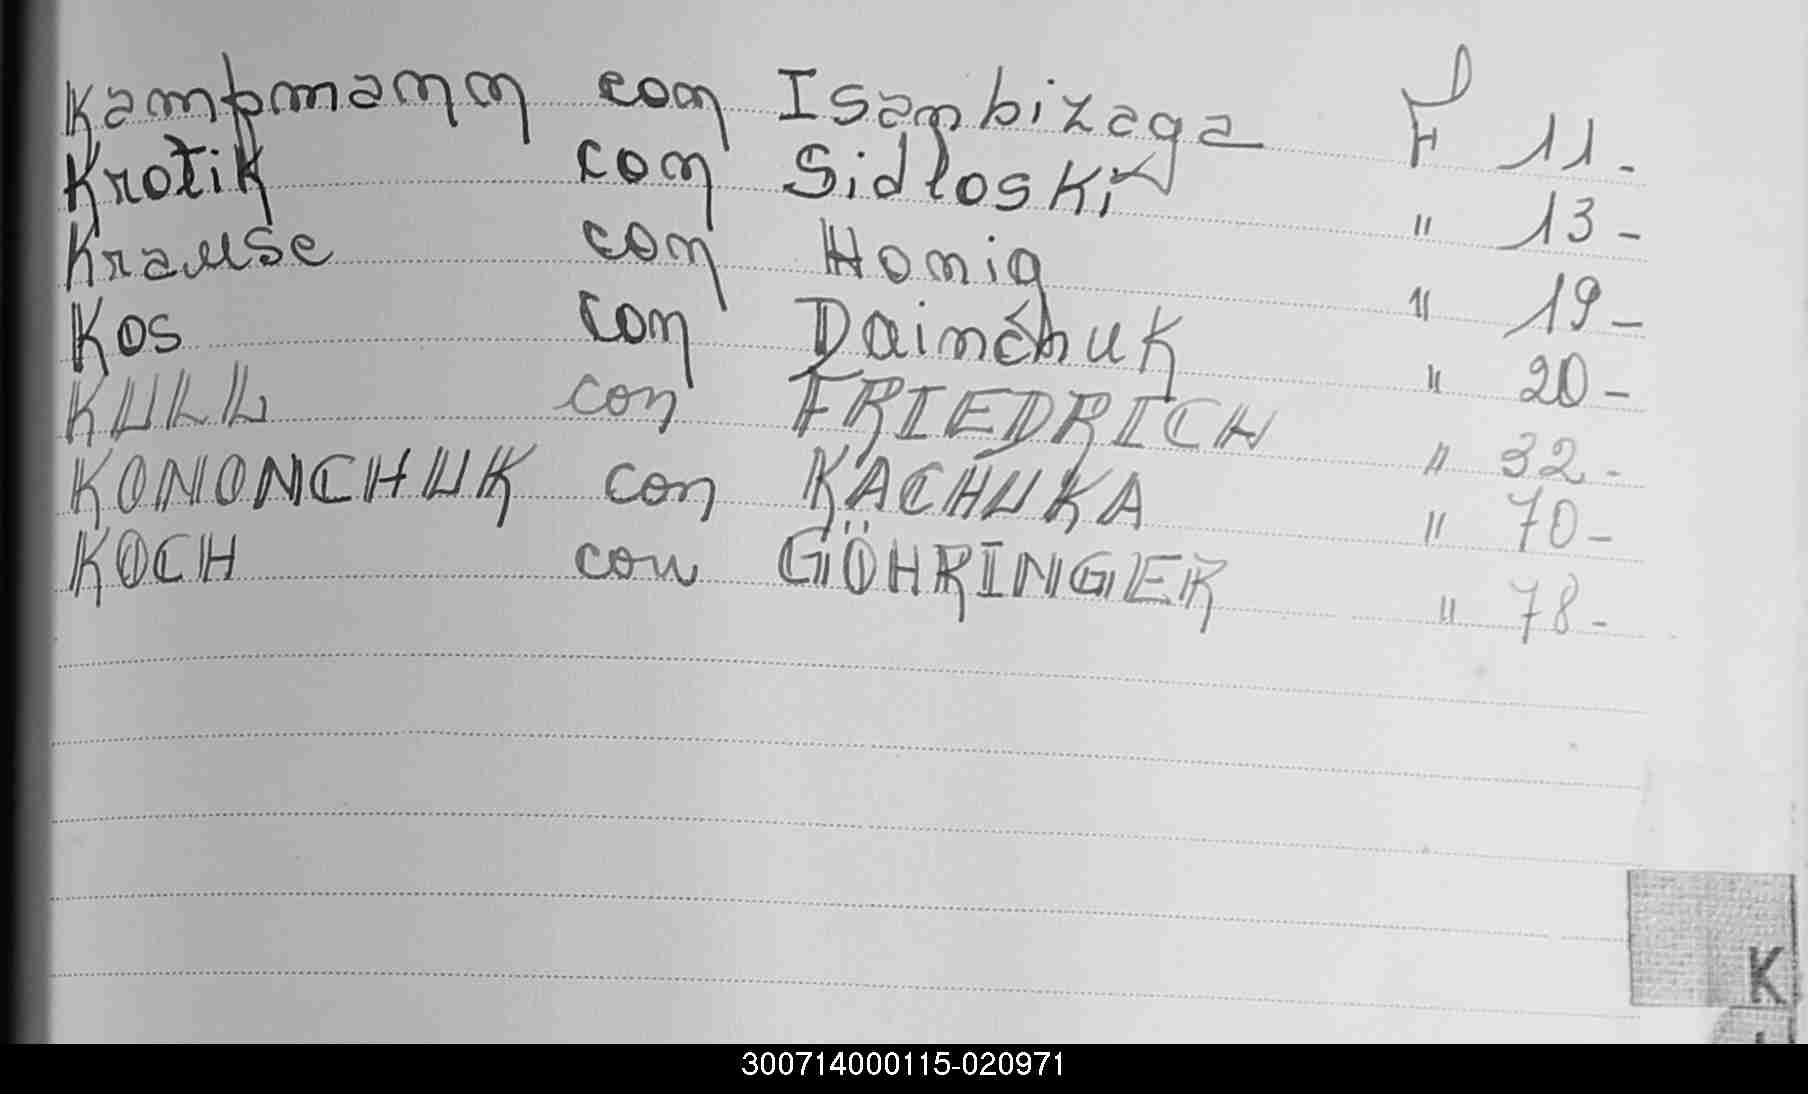 Kampmann con Isanbizaga F 11-
Krotik con Sidloski " 13-
Krause con Honig " 19-
Kos con Dainchuk " 20-
KULL con FRIEDRICH " 32-
KONONCHUK con KACHUKA " 70-
KOCH con GÖHRINGER " 78-
K
300714000115-020971